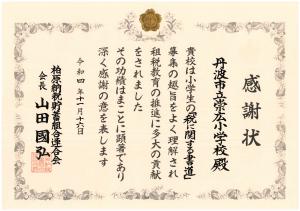 感謝状
丹波市立崇広小学校殿
貴校は小学生の「税に関する書道」
募集の趣旨をよく理解され
租税教育の推進に多大の貢献
をされました
その功績はまことに顕著であり
深く感謝の意を表します
令和四年十一月十六日
柏原納税貯蓄組合連合会
会長 山田國弘